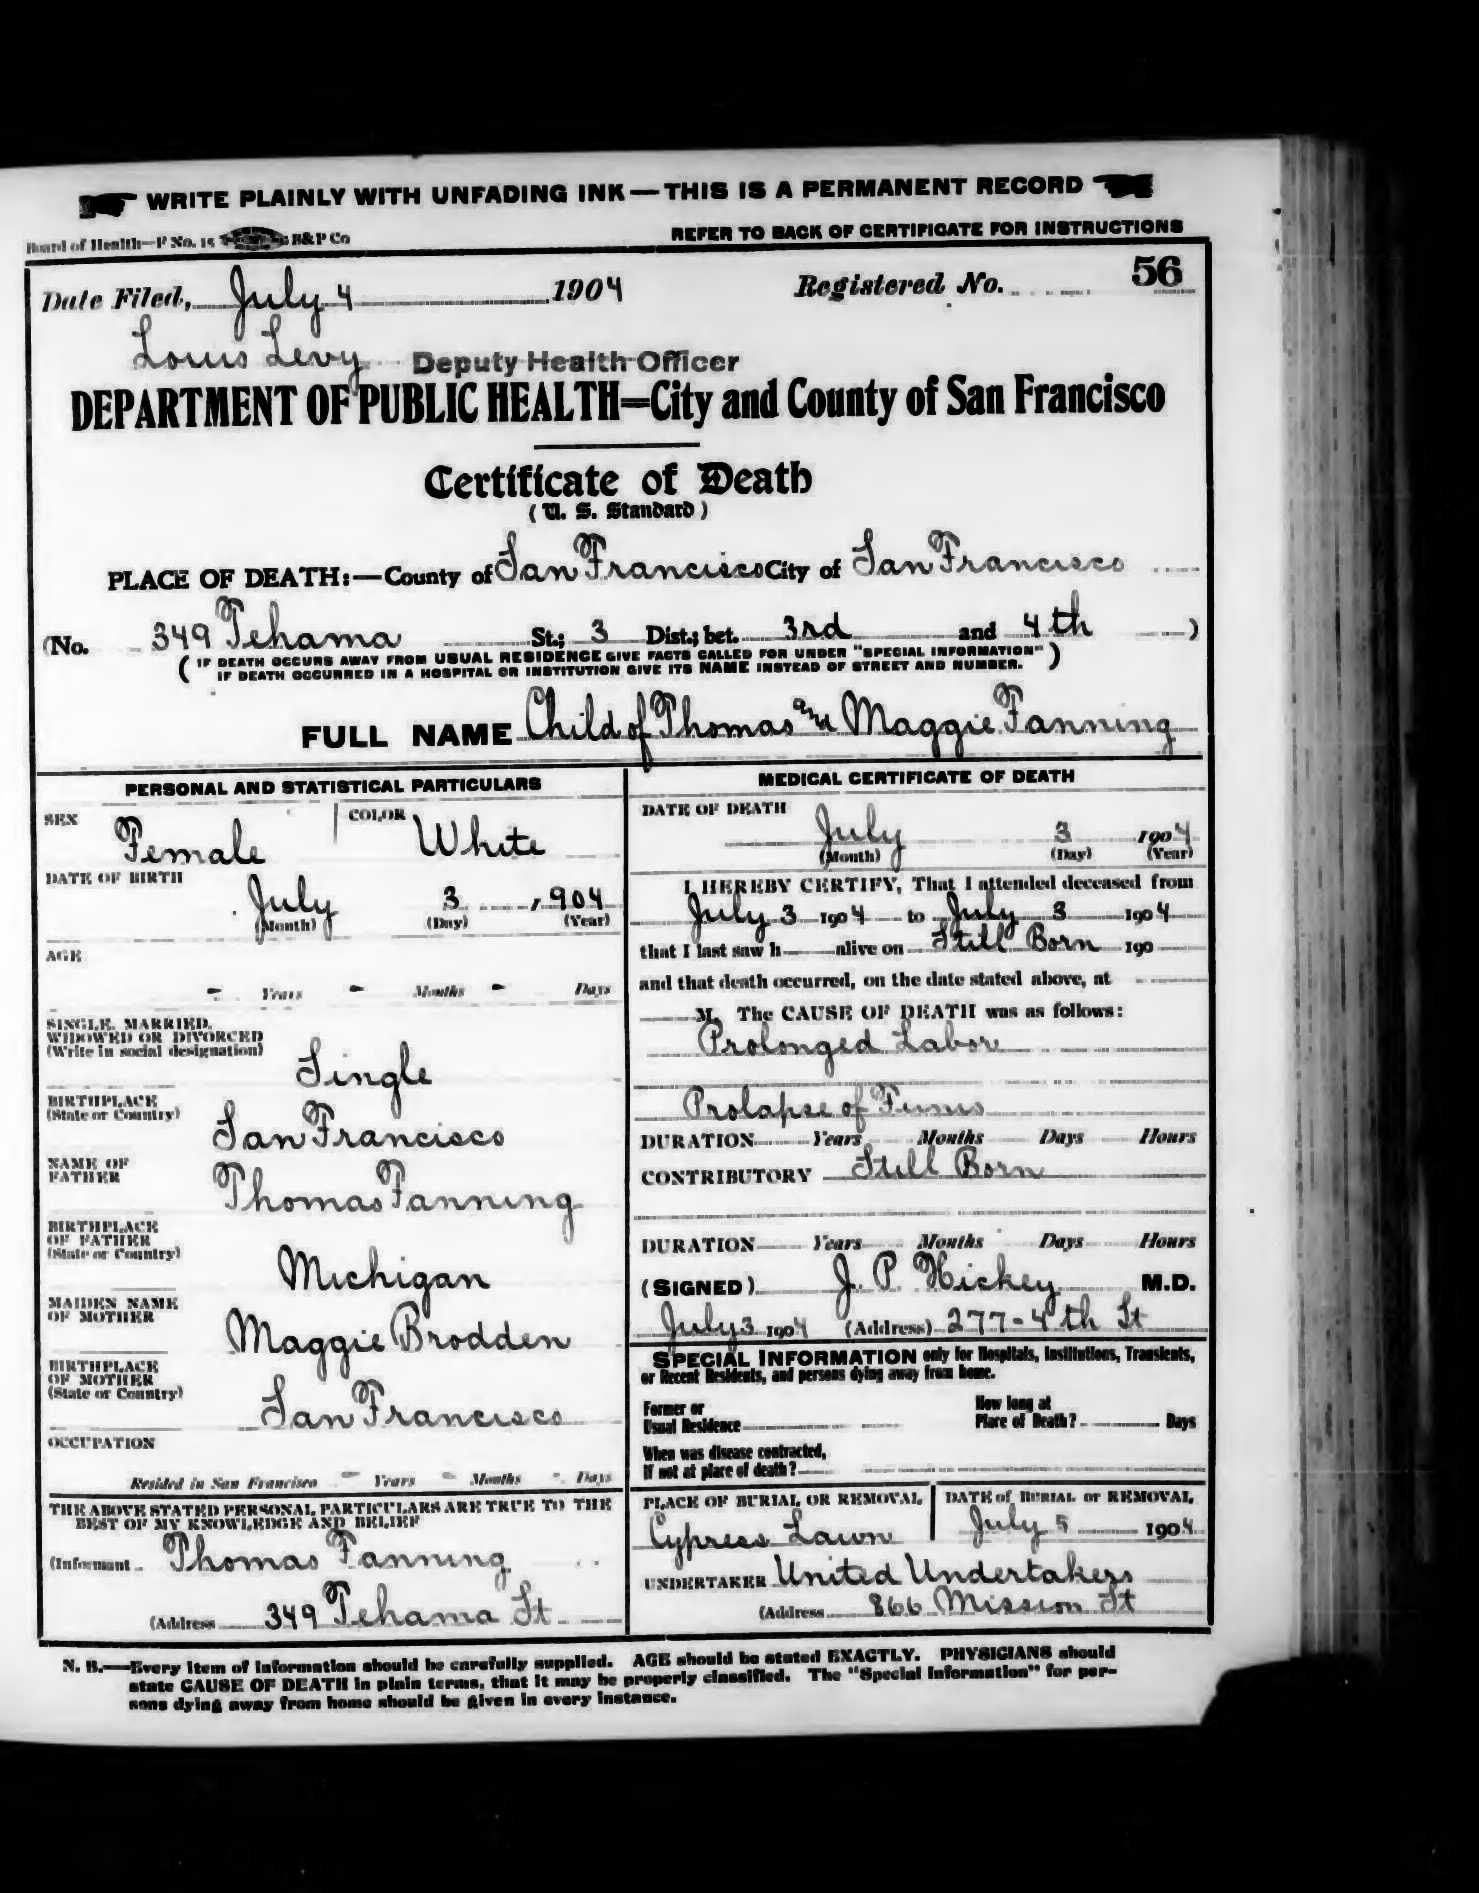 WRITE PLAINLY WITH UNFADING INK — THIS IS A PERMANENT RECORD
Board of Health—F No. 15 B&P Co
REFER TO BACK OF CERTIFICATE FOR INSTRUCTIONS
Date Filed, July 4 1904 Registered No. 56
Louis Levy Deputy Health Officer
DEPARTMENT OF PUBLIC HEALTH=City and County of San Francisco
Certificate of Death
(U. S. Standard)
PLACE OF DEATH:—County of San Francisco City of San Francisco
(No. 349 Tehama St.; 3 Dist.; bet. 3rd and 4th )
( IF DEATH OCCURS AWAY FROM USUAL RESIDENCE GIVE FACTS CALLED FOR UNDER "SPECIAL INFORMATION" )
IF DEATH OCCURRED IN A HOSPITAL OR INSTITUTION GIVE ITS NAME INSTEAD OF STREET AND NUMBER.
FULL NAME Child of Thomas and Maggie Fanning
PERSONAL AND STATISTICAL PARTICULARS
SEX Female COLOR White
DATE OF BIRTH
July 3 , 904
(Month) (Day) (Year)
AGE
- Years - Months - Days
SINGLE, MARRIED,
WIDOWED OR DIVORCED
(Write in social designation)
Single
BIRTHPLACE
(State or Country)
San Francisco
NAME OF
FATHER
Thomas Fanning
BIRTHPLACE
OF FATHER
(State or Country)
Michigan
MAIDEN NAME
OF MOTHER
Maggie Brodden
BIRTHPLACE
OF MOTHER
(State or Country)
San Francisco
OCCUPATION
Resided in San Francisco - Years - Months - Days
THE ABOVE STATED PERSONAL PARTICULARS ARE TRUE TO THE
BEST OF MY KNOWLEDGE AND BELIEF
(Informant Thomas Fanning
(Address 349 Tehama St
MEDICAL CERTIFICATE OF DEATH
DATE OF DEATH
July 3 1904
(Month) (Day) (Year)
I HEREBY CERTIFY, That I attended deceased from
July 3 1904 to July 3 1904
that I last saw h alive on Still Born 190
and that death occurred, on the date stated above, at
M. The CAUSE OF DEATH was as follows:
Prolonged Labor
Prolapse of Funus
DURATION Years Months Days Hours
CONTRIBUTORY Still Born
DURATION Years Months Days Hours
(SIGNED) J. P. Hickey M.D.
July 3 1904 (Address) 277-4th St
SPECIAL INFORMATION only for Hospitals, Institutions, Transients,
or Recent Residents, and persons dying away from home.
Former or
Usual Residence
How long at
Place of Death? Days
When was disease contracted,
If not at place of death?
PLACE OF BURIAL OR REMOVAL
Cypress Lawn
DATE of BURIAL or REMOVAL
July 5 1904
UNDERTAKER United Undertakers
(Address 866 Mission St
N. B.—Every item of information should be carefully supplied. AGE should be stated EXACTLY. PHYSICIANS should
state CAUSE OF DEATH in plain terms, that it may be properly classified. The "Special Information" for per-
sons dying away from home should be given in every instance.